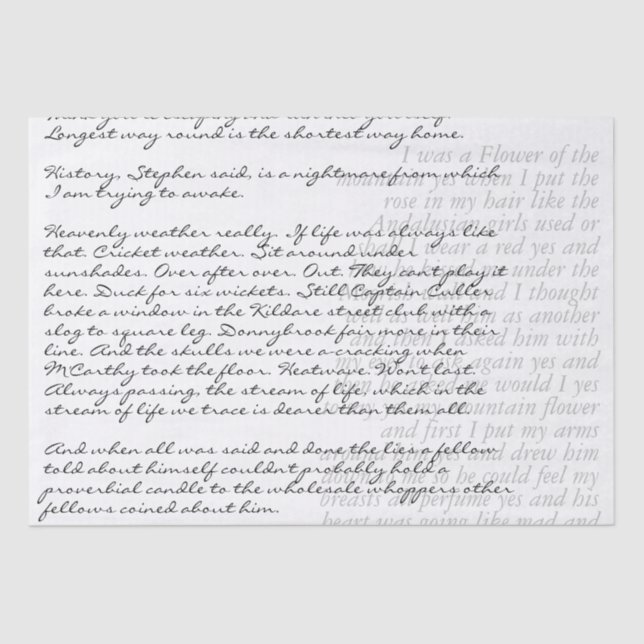 Longest way round is the shortest way home.
History, Stephen said, is a nightmare from which
I am trying to awake.
Heavenly weather really. If life was always like
that. Cricket weather. Sit around under
sunshades. Over after over. Out. They cant play it
here. Duck for six wickets. Still Captain Culler
broke a window in the Kildare street club with a
slog to square leg. Donnybrook fair more in their
line. And the skulls we were a-cracking when
MCarthy took the floor. Heatwave. Wont last.
Always passing, the stream of life, which in the
stream of life we trace is dearer than them all.
And when all was said and done the lies a fellow
told about himself couldnt probably hold a
proverbial candle to the wholesale whoppers other
fellows coined about him.
I was a Flower of the
mountain yes when I put the
rose in my hair like the
Andalusian girls used or
shall I wear a red yes and
under the
and I thought
well as well him as another
and then I asked him with
my eyes to ask again yes and
then he asked me would I yes
mountain flower
and first I put my arms
around him yes and drew him
down to me so he could feel my
breasts all perfume yes and his
heart was going like mad and